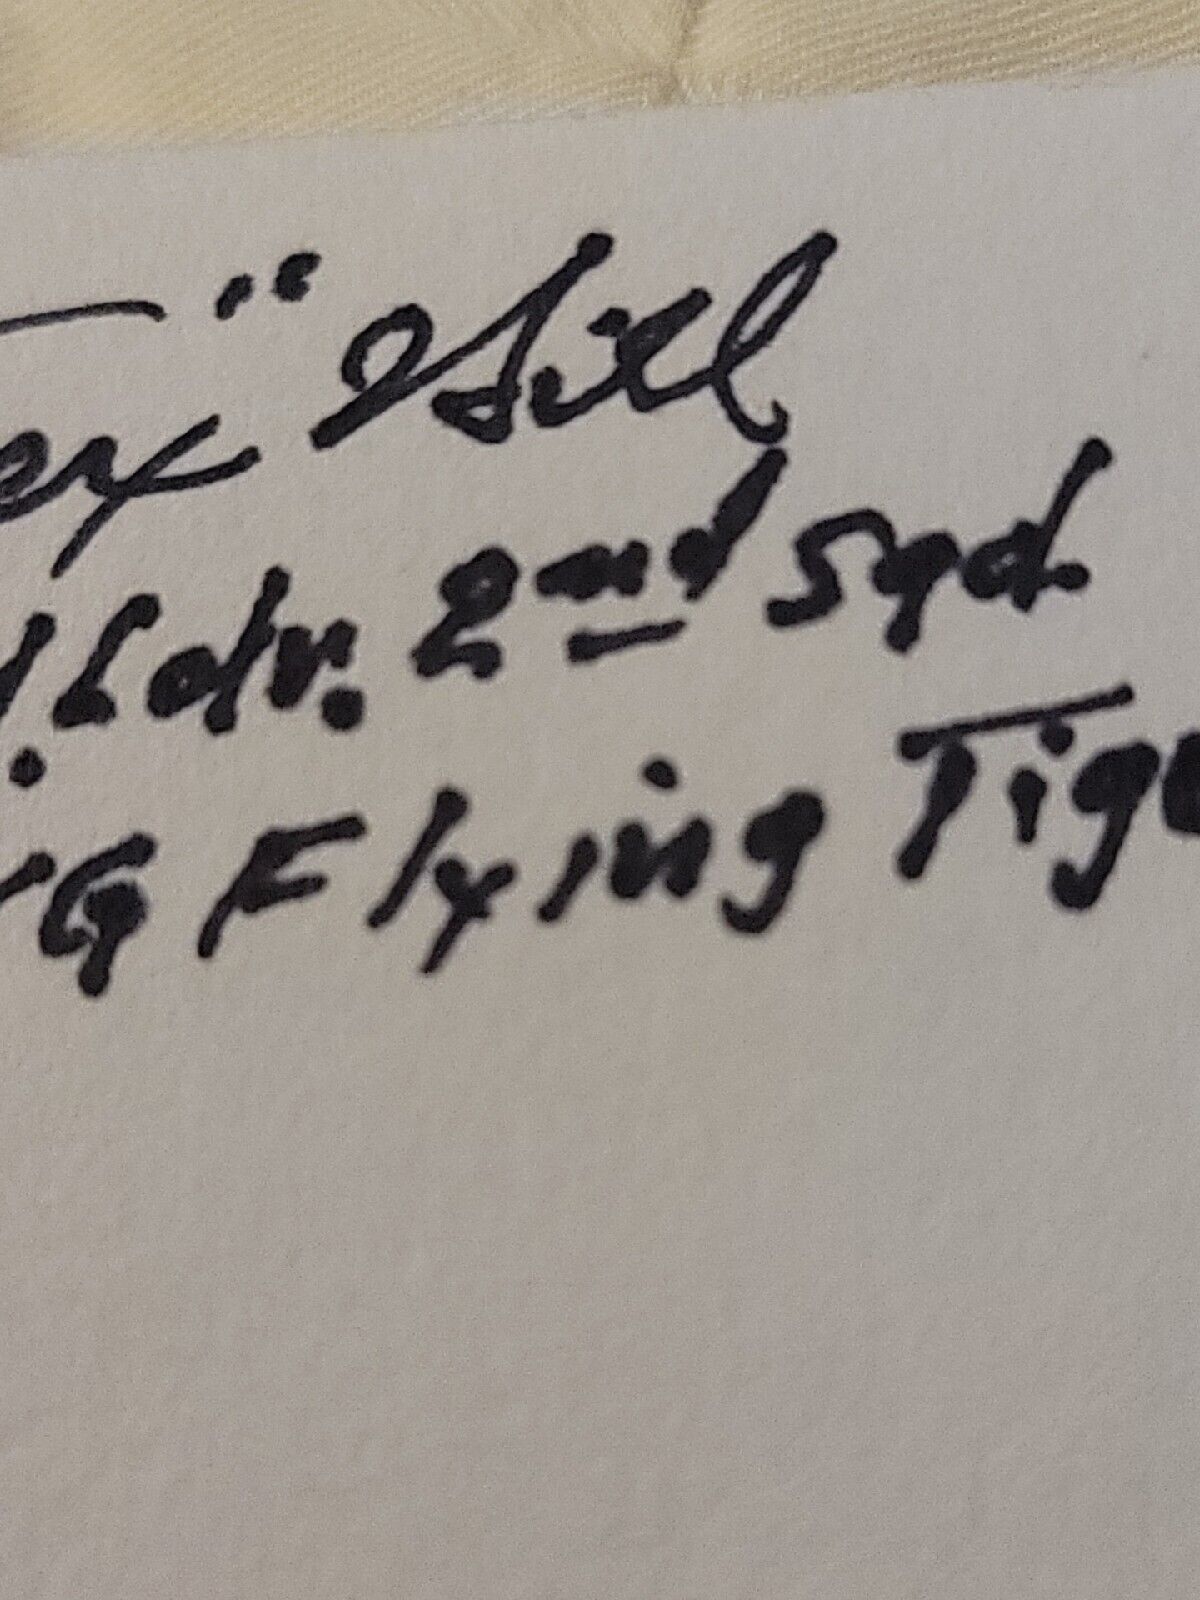 ex" Hill
Ldr. 2nd Sqd.
G Flying Tige